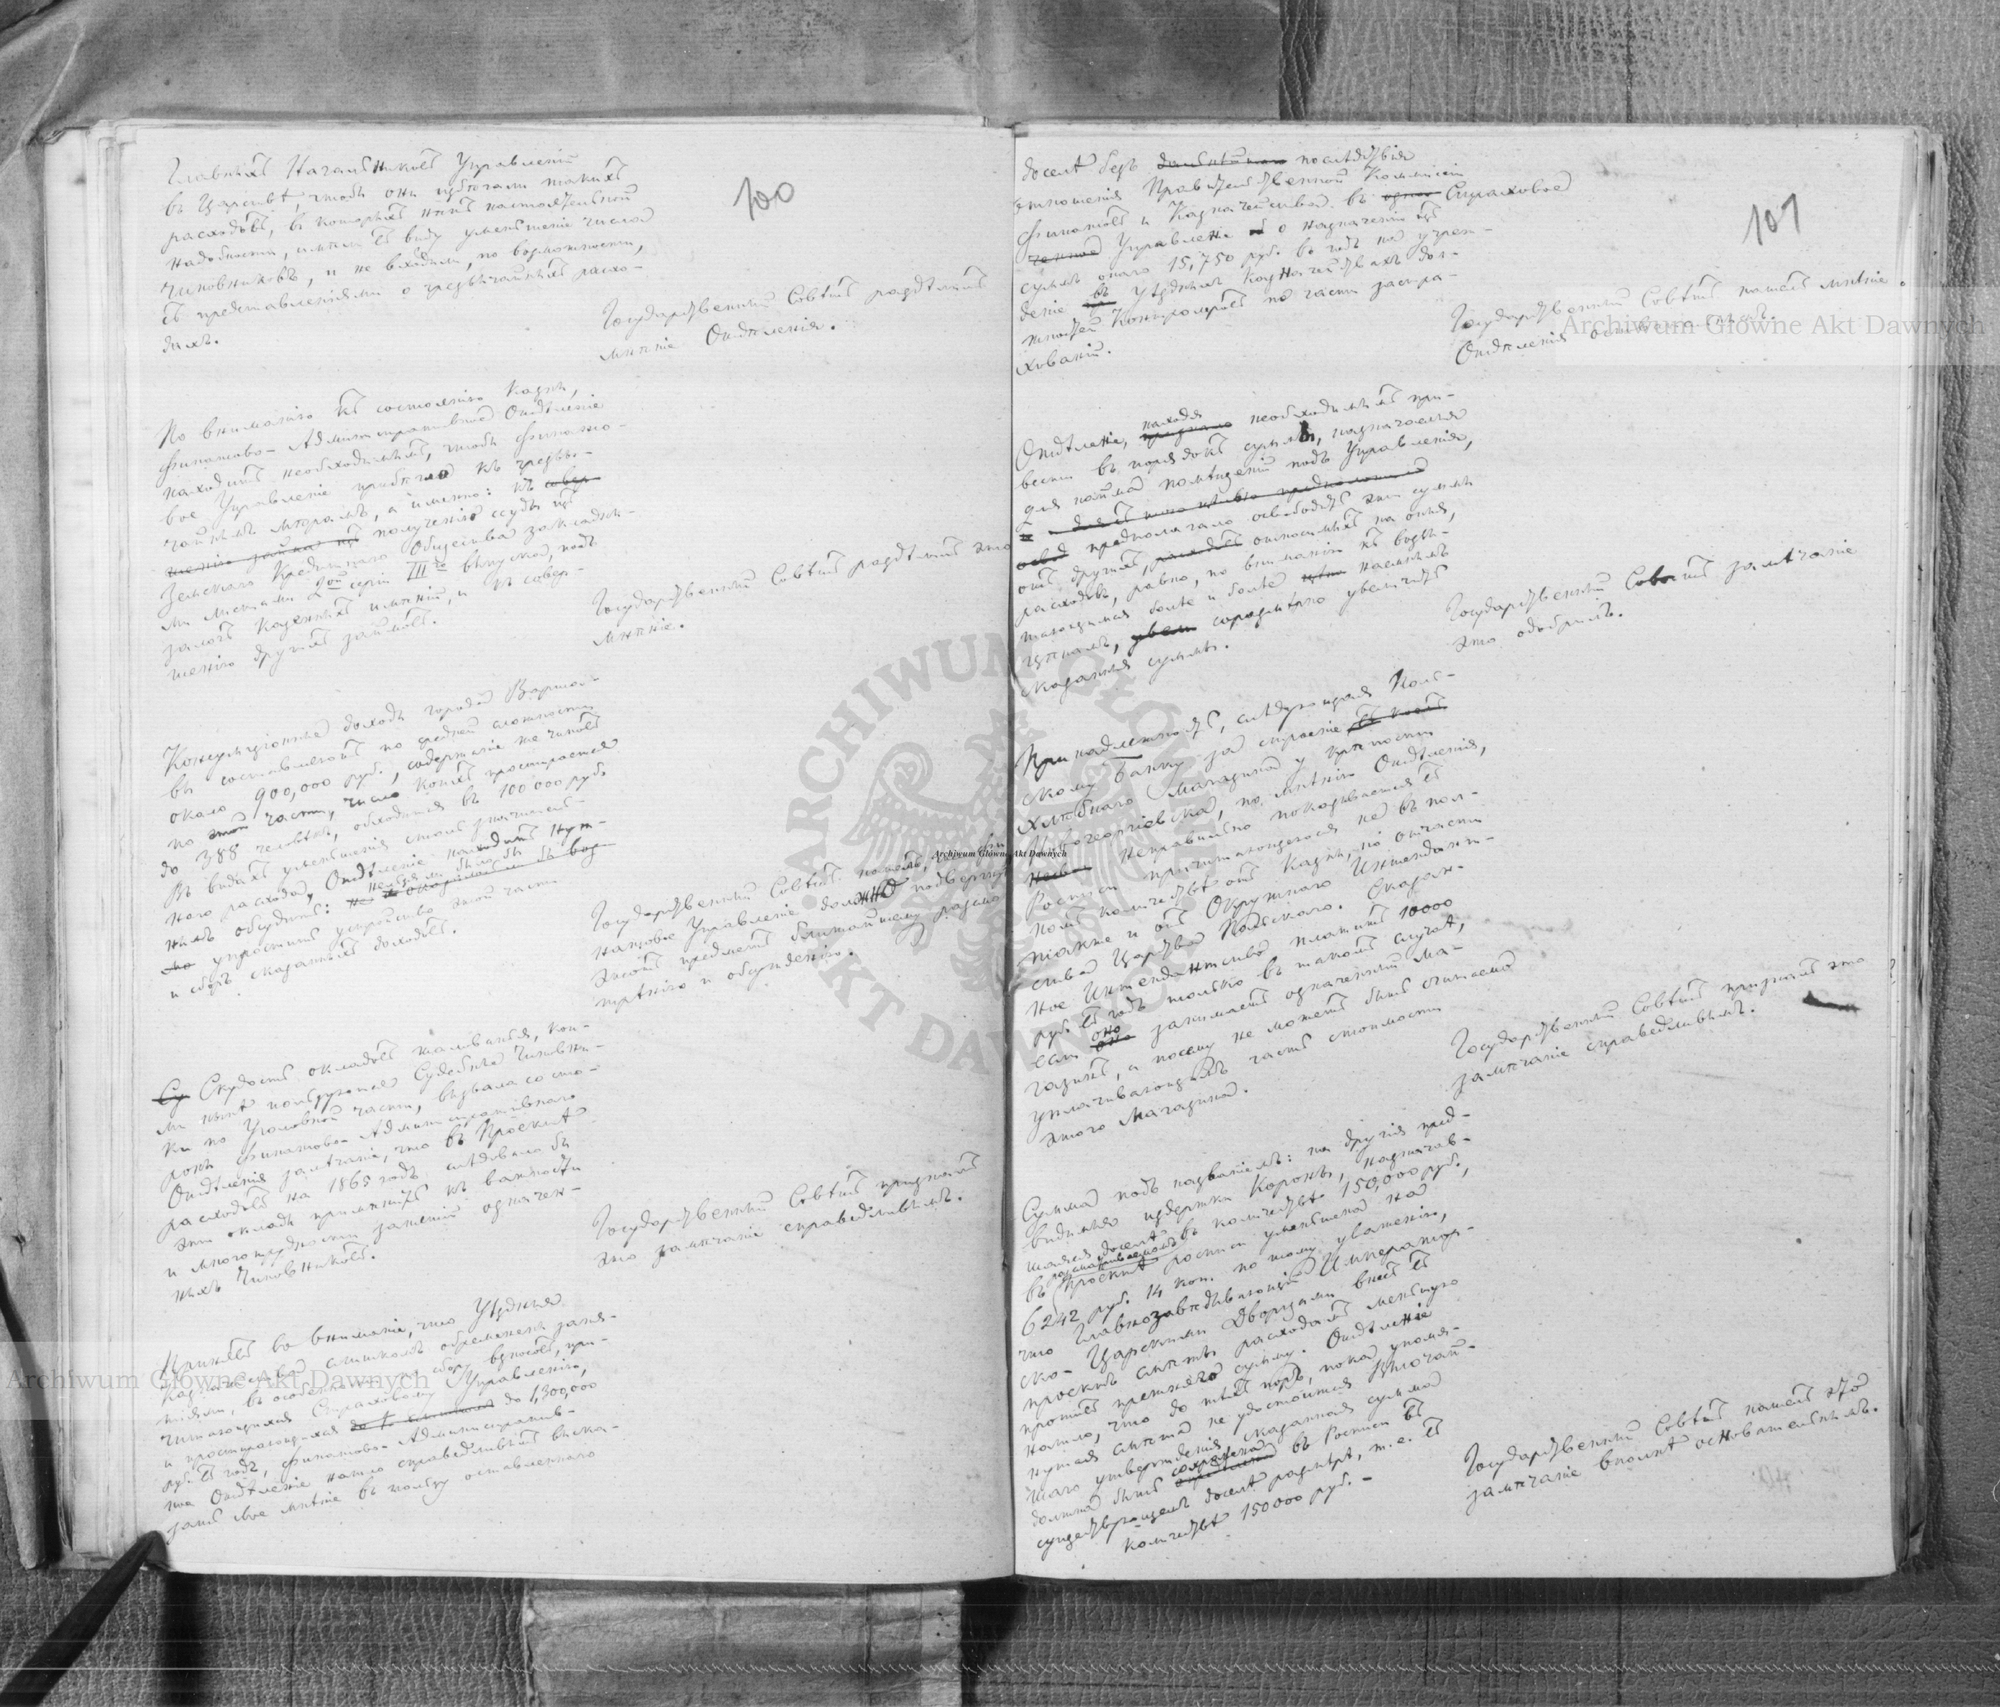 100
Главныхъ Начальниковъ Управленій
въ Царствѣ, чтобы они избѣгали такихъ
расходовъ, въ которыхъ нѣтъ настоятельной
надобности, имѣли въ виду уменьшеніе числа
чиновниковъ, и не входили, по возможности,
съ представленіями о чрезвычайныхъ расхо-
дахъ.
Государственный Совѣтъ раздѣлилъ
мнѣніе Отдѣленія.
По вниманію къ состоянію Казны,
Финансово-Административное Отдѣленіе
находитъ необходимымъ, чтобы Финансо-
вое Управленіе прибѣгло къ чрезвы-
чайнымъ мѣрамъ, а именно: къ совер-
шенію займа из полученію ссуды изъ
Земскаго Кредитнаго Общества закладны-
ми листами 2ой серіи III го выпуска, подъ
залогъ Казенныхъ имѣній, и къ совер-
шенію другихъ займовъ.
Государственный Совѣтъ раздѣлилъ это
мнѣніе.
Консумціонные доходы города Варша-
вы составляютъ по средней сложности
около 900,000 руб., содержаніе же чиновъ
по этой части, число коихъ простирается
до 388 человѣкъ, обходится въ 100 000 руб.
Въ видахъ уменьшенія столь значитель-
наго расхода, Отдѣленіе находитъ нуж-
нымъ обсудить: не нельзя ли было бы
упростить устройство этой части
и сборъ сказанныхъ доходовъ.
Государственный Совѣтъ нашелъ,
нансовое Управленіе должно подвергнуть
этотъ предметъ ближайшему разсмо-
трѣнію и обсужденію.
Су Скудость окладовъ жалованья, кои-
ми нынѣ пользуются Судебные чиновни-
ки по Уголовной части, вызвала со сто-
роны Финансово-Административнаго
Отдѣленія замѣчаніе, что въ Проектѣ
расходовъ на 1865 годъ слѣдовало бы
эти оклады примѣнить къ важности
и многотрудности занятій означен-
ныхъ Чиновниковъ.
Государственный Совѣтъ призналъ
это замѣчаніе справедливымъ.
Принявъ во вниманіе, что Уѣздныя
Казначейства слишкомъ обременены заня-
тіями, въ особенности по сбору взносовъ, при-
читающихся Страховому Управленію,
и простирающихся до 1,300,000
руб. въ годъ, Финансово-Административ-
ное Отдѣленіе нашло справедливымъ выска-
зать свое мнѣніе въ пользу оставленнаго
101
доселѣ безъ послѣдствія
отношенія Правительственной Коммисіи
Финансовъ и Казначейства въ Страховое
Управленіе о назначеніи изъ
суммъ около 15,750 руб. въ годъ на учреж-
деніе въ Уѣздныхъ Казначействахъ дол-
жностей Контролеровъ по части застра-
хованій.
Государственный Совѣтъ нашелъ мнѣніе
Отдѣленія основательнымъ.
Отдѣленіе, находя необходимымъ при-
вести въ порядокъ суммы, назначаемыя
для найма помѣщеній подъ Управленія,
предполагало освободить эти суммы
отъ другихъ, расходовъ относимыхъ на оныя,
расходовъ, равно, по вниманію къ возвы-
шающимся болѣе и болѣе наемнымъ
цѣнамъ, соразмѣрно увеличить
сказанныя суммы.
Государственный Совѣтъ замѣчаніе
это одобрилъ.
Принадлежность, слѣдующая Поль-
скому Банку за строеніе
хлѣбнаго Магазина у крѣпости
Новогеоргіевска, по мнѣнію Отдѣленія,
неправильно показывается въ
Росписи причитающеюся не въ пол-
номъ количествѣ отъ Казны, но отчасти
также и отъ Окружнаго Интендант-
ства Царства Польскаго. Сказан-
ное Интендантство платитъ 10000
руб. въ годъ только въ такомъ случаѣ,
если оно занимаетъ означенный Ма-
газинъ, а посему не можетъ быть считаемо
уплачивающимъ часть стоимости
этого Магазина.
Государственный Совѣтъ призналъ это
замѣчаніе справедливымъ.
Сумма подъ названіемъ: на другія пред-
видимыя издержки Короны, назначав-
шаяся доселѣ въ количествѣ 150,000 руб.,
въ разсматриваемомъ проектѣ росписи уменьшена на
6242 руб. 14 коп. по тому уваженію,
что Главнозавѣдывающій Император-
ско-Царскими Дворцами внесъ въ
проектъ смѣты расходовъ меньшую
противъ прежняго сумму. Отдѣленіе
нашло, что до тѣхъ поръ, пока упомя-
нутая смѣта не удостоится Высочай-
шаго утвержденія, сказанная сумма
должна быть сохранена въ Росписи въ
существующемъ доселѣ размѣрѣ, т. е. въ
количествѣ 150000 руб. —
Государственный Совѣтъ нашелъ это
замѣчаніе вполнѣ основательнымъ.
Archiwum Główne Akt Dawnych
Archiwum Główne Akt Dawnych
Archiwum Główne Akt Dawnych
ARCHIWUM GŁÓWNE AKT DAWNYCH